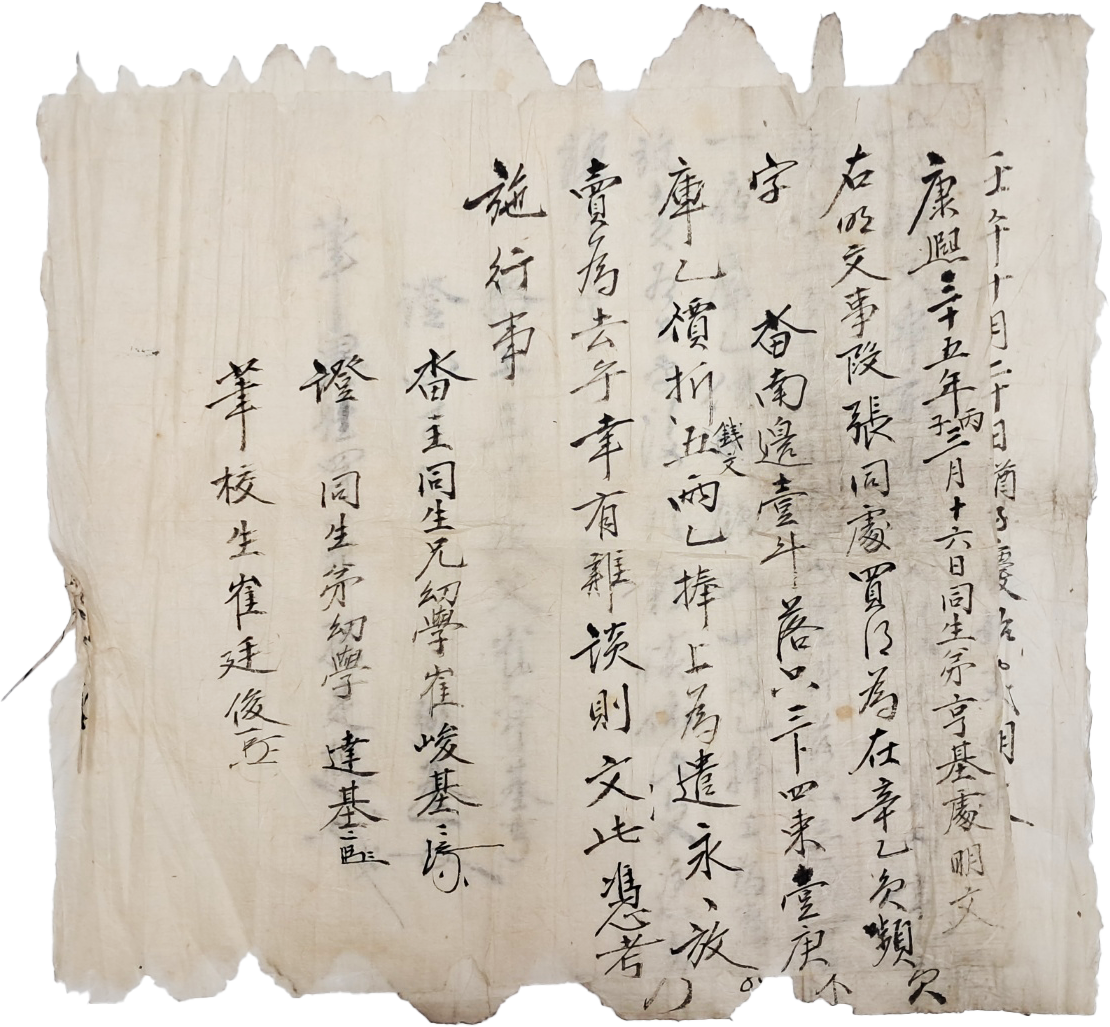 壬午十月二十日
康熙三十五年丙子三月十六日同生弟亨基處明文
右明文事段張同處買得為在
字　畓南邊壹斗落只三卜四束壹庚
庫乙價折錢文五兩乙捧上為遣永〃放
賣為去乎幸有雜談則文此憑考
施行事
畓主同生兄幼學崔峻基
證同生弟幼學達基
筆校生崔廷俊